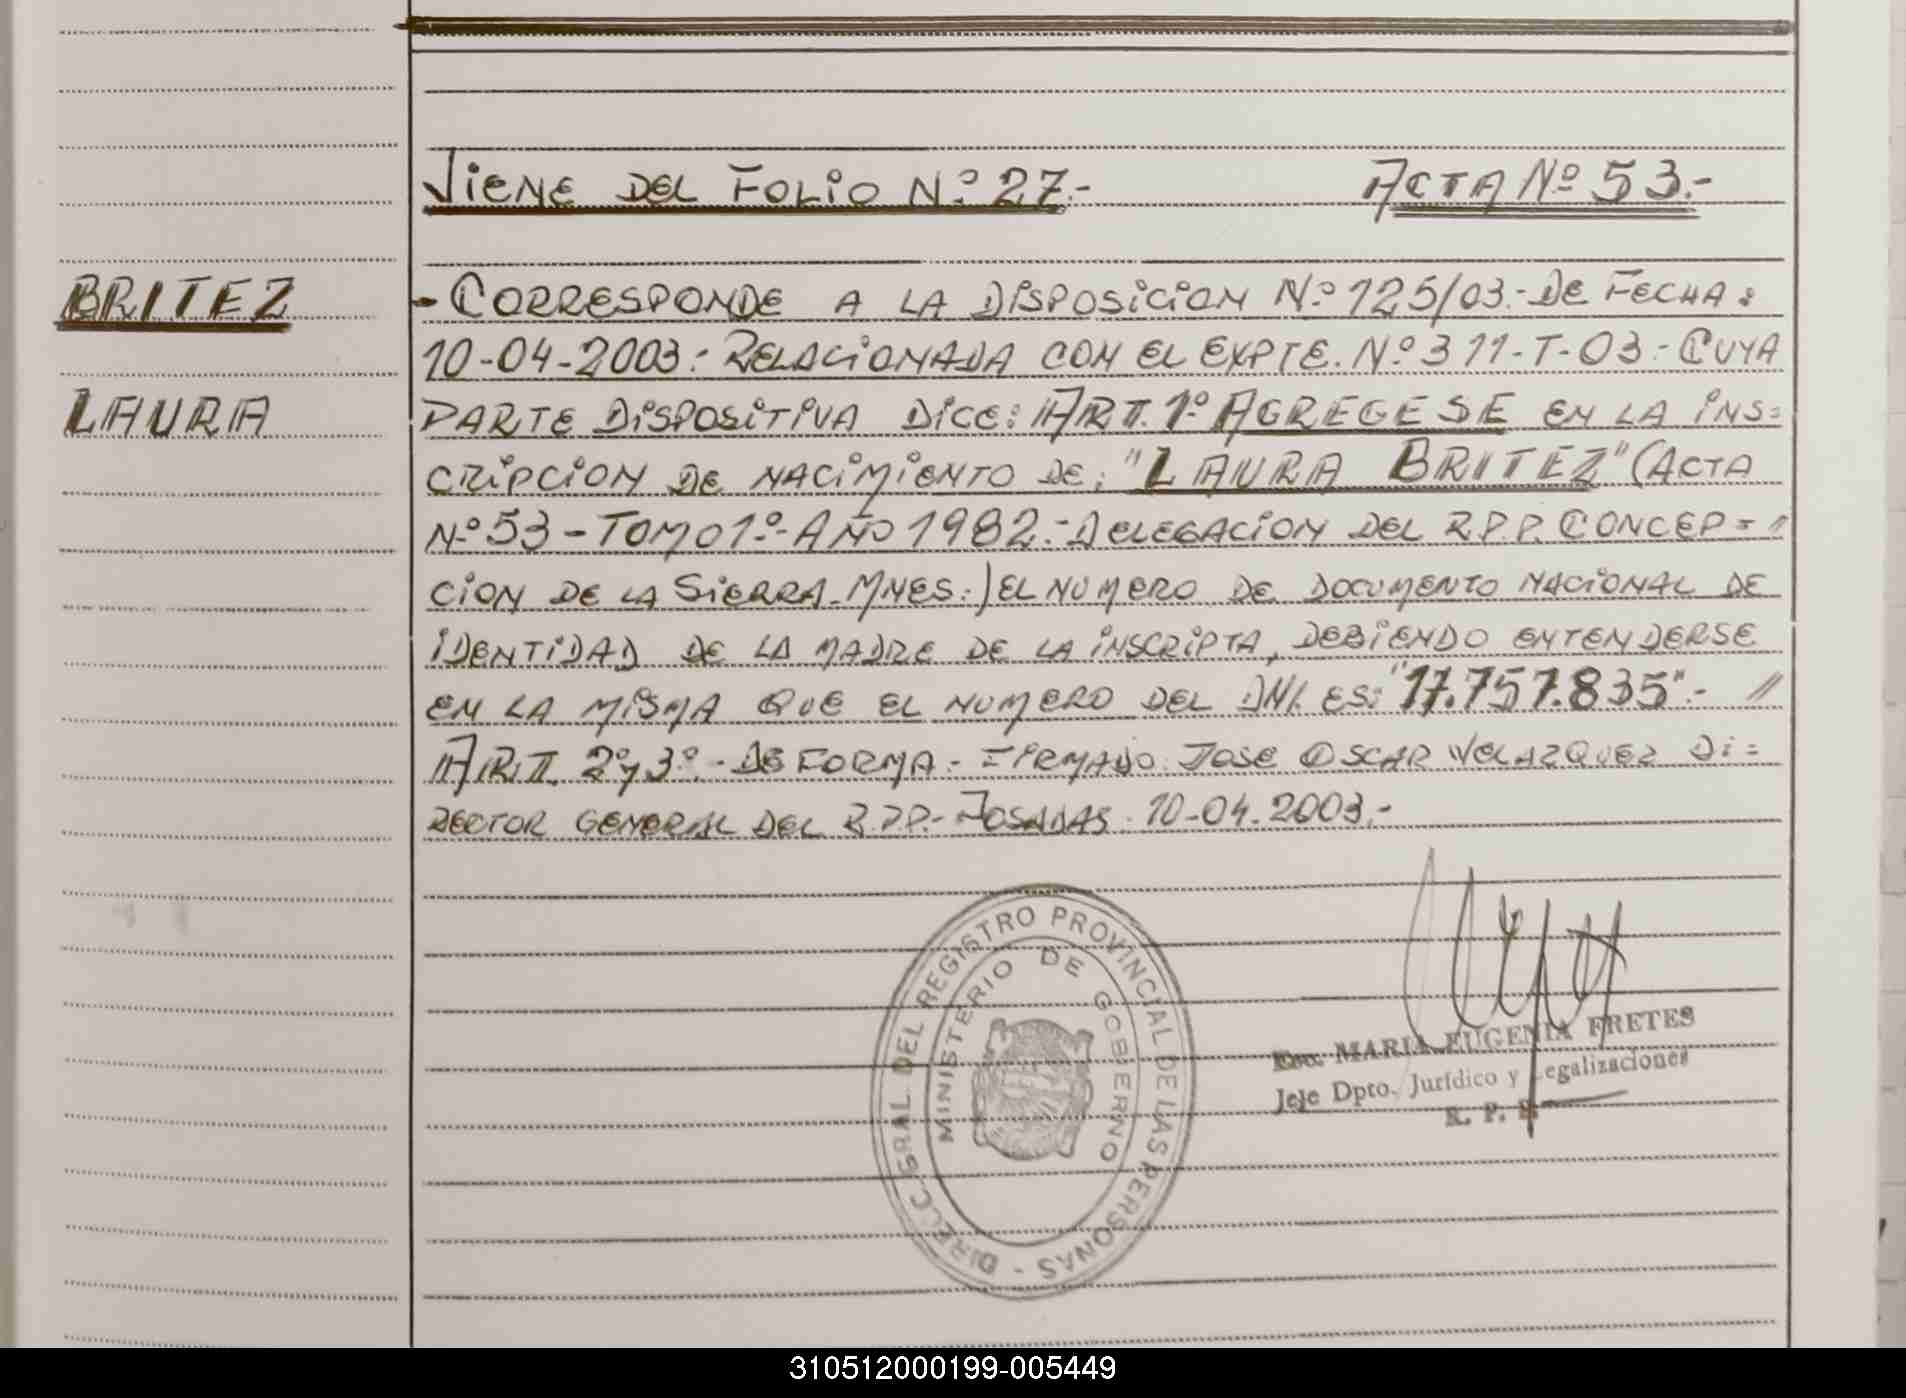 VIENE DEL FOLIO Nº 27.- ACTA Nº 53.-
BRITEZ
LAURA
- CORRESPONDE A LA DISPOSICION Nº 125/03.- DE FECHA:
10-04-2003.- RELACIONADA CON EL EXPTE. Nº 311-T-03.- CUYA
PARTE DISPOSITIVA DICE: ART. 1º AGREGESE EN LA INS=
CRIPCION DE NACIMIENTO DE: "LAURA BRITEZ" (ACTA
Nº 53 - TOMO 1º.- AÑO 1982.- DELEGACION DEL R.P.P. CONCEP=
CION DE LA SIERRA - MNES.) EL NUMERO DE DOCUMENTO NACIONAL DE
IDENTIDAD DE LA MADRE DE LA INSCRIPTA, DEBIENDO ENTENDERSE
EN LA MISMA QUE EL NUMERO DEL DNI. ES: "17.757.835".- //
ART. 2º y 3º.- DE FORMA.- FIRMADO JOSE OSCAR VELAZQUEZ DI=
RECTOR GENERAL DEL R.P.P.- POSADAS. 10-04-2003.-
DIRECC. GRAL. DEL REGISTRO PROVINCIAL DE LAS PERSONAS -
MINISTERIO DE GOBIERNO
Esc. MARIA EUGENIA FRETES
Jefe Dpto. Jurídico y Legalizaciones
R. P. P.
310512000199-005449